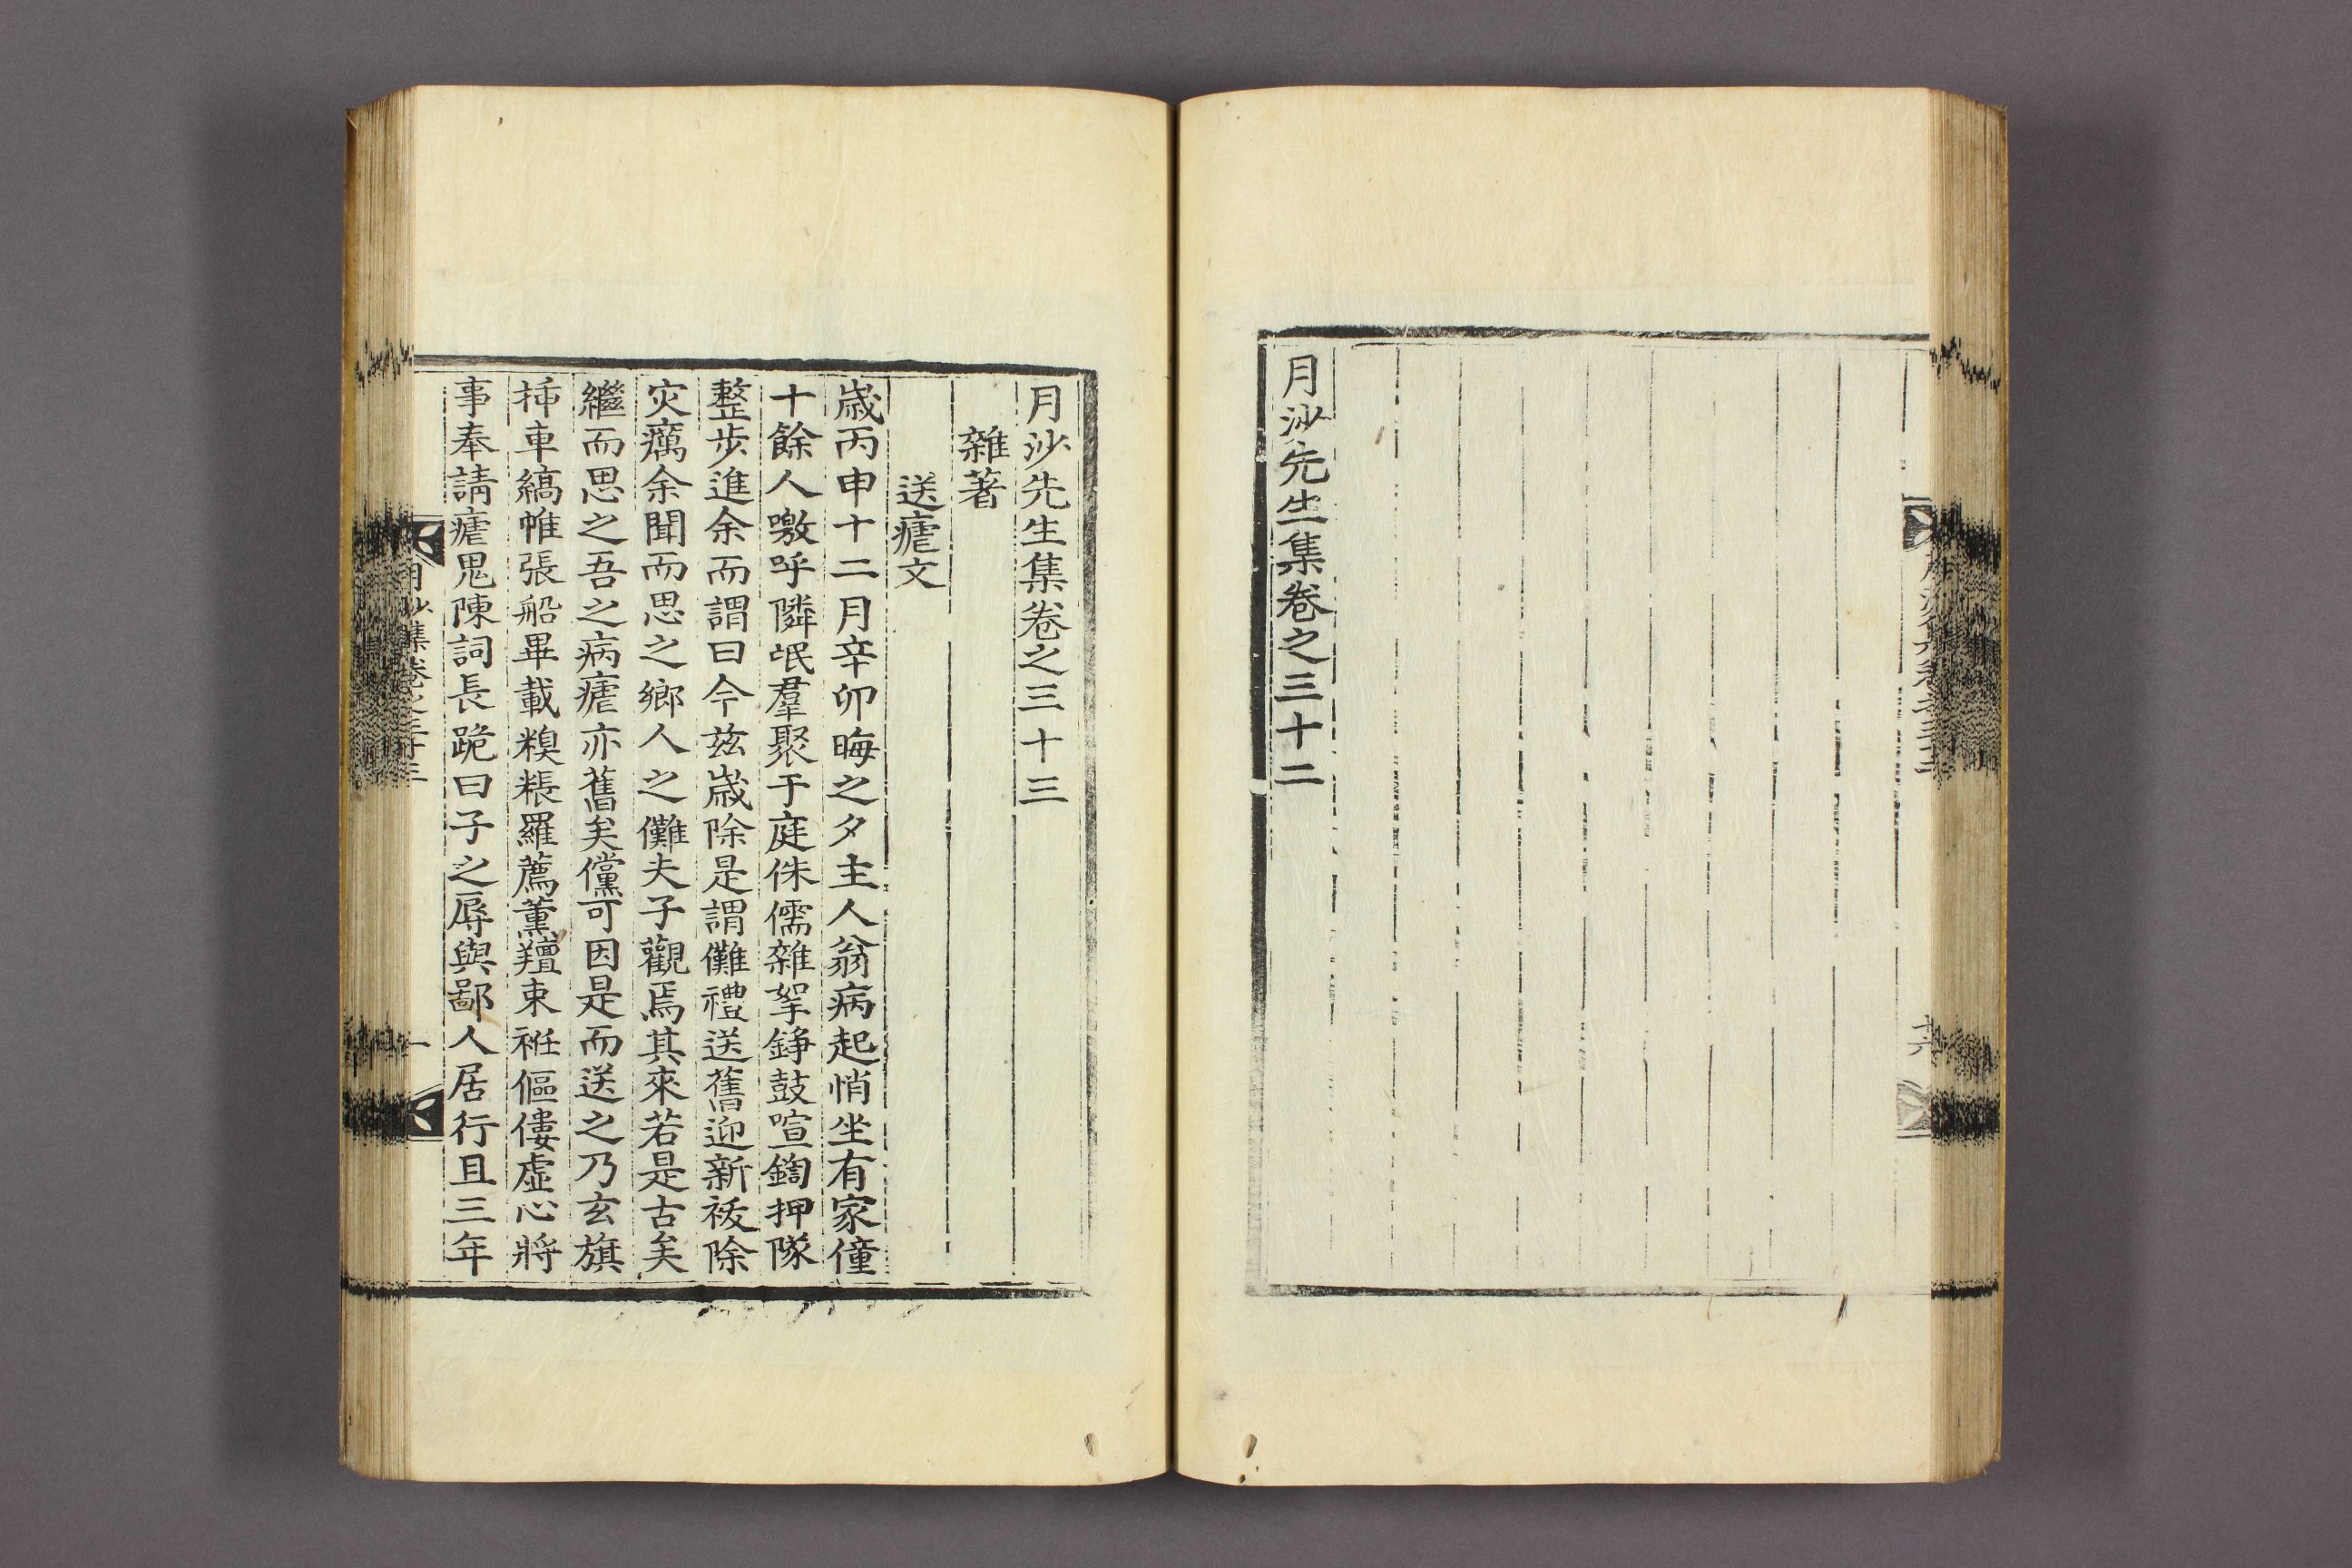 月沙先生集卷之三十二
月沙先生集卷之三十三
雜著
送瘧文
歲丙申十二月辛卯晦之夕主人翁病起悄坐有家僮
十餘人噭呼隣氓羣聚于庭侏儒雜挐錚鼓喧鍧押隊
整步進余而謂曰今玆歲除是謂儺禮送舊迎新祓除
灾癘余聞而思之鄕人之儺夫子觀焉其來若是古矣
繼而思之吾之病瘧亦舊矣儻可因是而送之乃玄旗
揷車縞帷張船畢載糗粻羅薦薰羶束袵傴僂虛心將
事奉請瘧鬼陳詞長跪曰子之辱與鄙人居行且三年
月沙集卷之三十三
一
十六